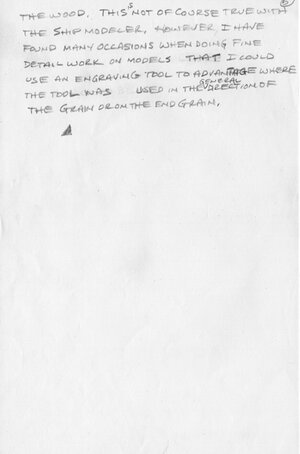 THE WOOD. THIS IS NOT OF COURSE TRUE WITH
THE SHIP MODELER. HOWEVER, I HAVE
FOUND MANY OCCASIONS WHEN DOING FINE
DETAIL WORK ON MODELS THAT I COULD
USE AN ENGRAVING TOOL TO ADVANTAGE WHERE
THE TOOL WAS USED IN THE GENERAL DIRECTION OF
THE GRAIN OR ON THE END GRAIN.